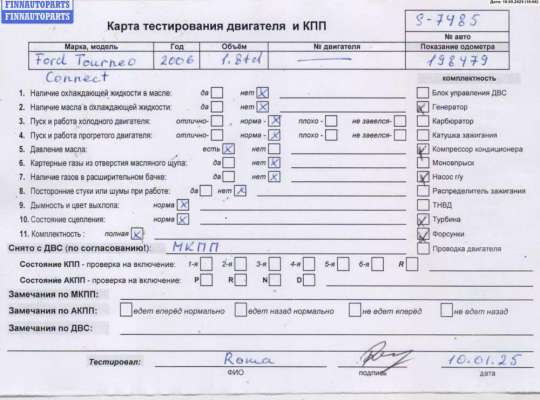 FINNAUTOPARTS
FINNAUTOPARTS
Карта тестирования двигателя и КПП
S-7485
№ авто
Марка, модель Год Объём № двигателя Показание одометра
Ford Tourneo 2006 1.8td 198479
Connect
комплектность
1. Наличие охлаждающей жидкости в масле: да нет Блок управления ДВС
2. Наличие масла в охлаждающей жидкости: да нет Генератор
3. Пуск и работа холодного двигателя: отлично- норма - плохо - не завелся- Карбюратор
4. Пуск и работа прогретого двигателя: отлично- норма - плохо - не завелся- Катушка зажигания
5. Давление масла: есть нет Компрессор кондиционера
6. Картерные газы из отверстия масляного щупа: да нет Моновпрыск
7. Наличие газов в расширительном бачке: да нет Насос г/у
8. Посторонние стуки или шумы при работе: да нет Распределитель зажигания
9. Дымность и цвет выхлопа: норма ТНВД
10. Состояние сцепления: норма Турбина
11. Комплектность : полная Форсунки
Снято с ДВС (по согласованию!): МКПП Проводка двигателя
Состояние КПП - проверка на включение: 1-я 2-я 3-я 4-я 5-я 6-я R
Состояние АКПП - проверка на включение: P R N D
Замечания по МКПП:
Замечания по АКПП: едет вперёд нормально едет назад нормально не едет вперёд не едет назад
Замечания по ДВС:
Тестировал: Roma 10.01.25
ФИО подпись дата